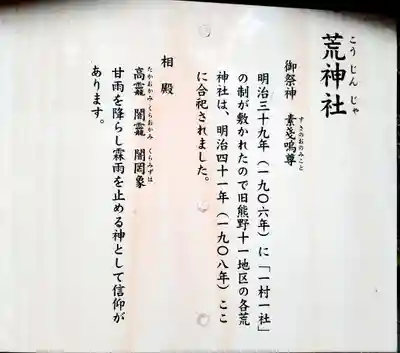 こうじんじゃ
荒神社
御祭神　素戔嗚尊
すさのおのみこと
明治三十九年（一九〇六年）に「一村一社」
の制が敷かれたので旧熊野十一地区の各荒
神社は、明治四十一年（一九〇八年）ここ
に合祀されました。
相殿
たかおかみ　くらおかみ　くらみずは
高龗　闇龗　闇罔象
甘雨を降らし霖雨を止める神として信仰が
あります。